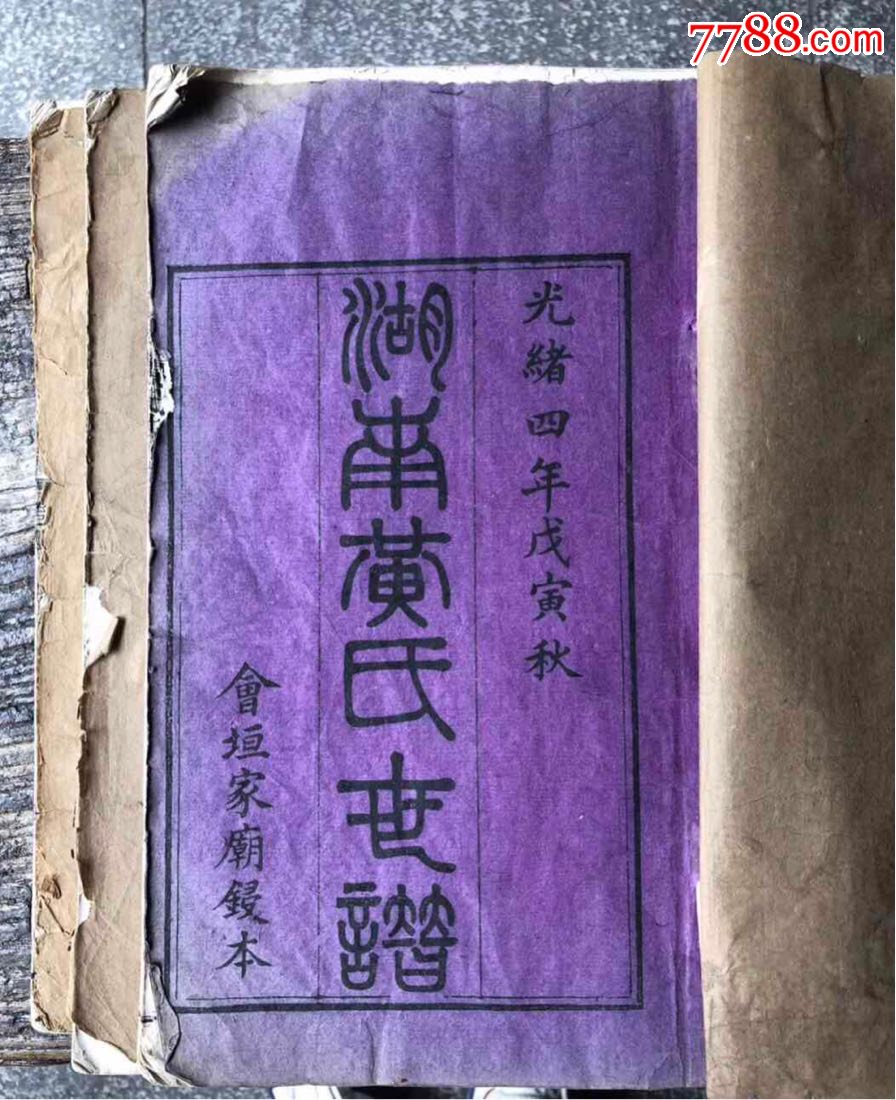 7788.com
光緒四年戊寅秋
湖南黃氏世譜
會垣家廟鋟本